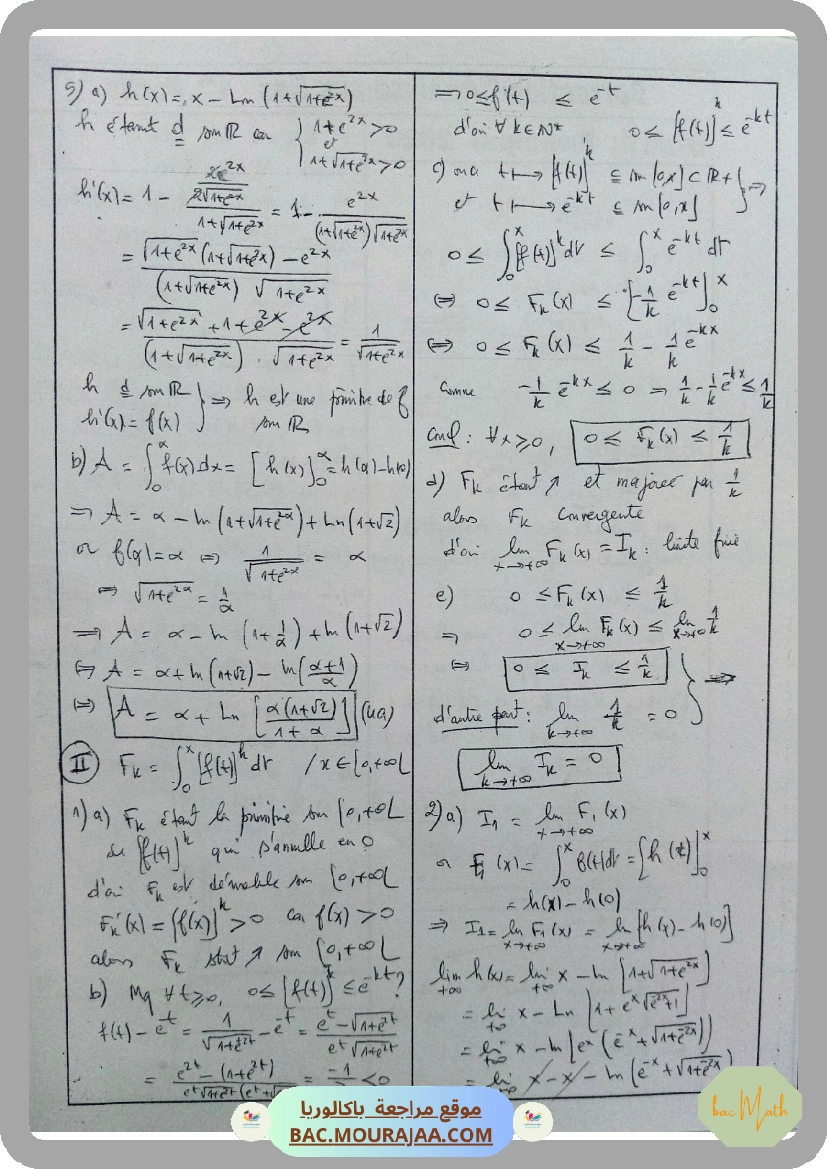 5) a) h(x) = x - Ln (1+√(1+e^2x))
h étant d sur ℝ car { 1+e^2x > 0
et
1+√(1+e^2x) > 0
h'(x) = 1 - (2e^2x / 2√(1+e^2x)) / (1+√(1+e^2x)) = 1 - e^2x / ((1+√(1+e^2x)) √(1+e^2x))
= (√(1+e^2x) (1+√(1+e^2x)) - e^2x) / ((1+√(1+e^2x)) √(1+e^2x))
= (√(1+e^2x) + 1 + e^2x - e^2x) / ((1+√(1+e^2x)) . √(1+e^2x)) = 1 / √(1+e^2x)
h d sur ℝ
h'(x) = f(x) } ⇒ h est une primitive de f
sur ℝ
b) A = ∫₀^α f(x) dx = [h(x)]₀^α = h(α) - h(0)
⇒ A = α - ln (1+√(1+e^2α)) + Ln (1+√2)
or f(α) = α ⇔ 1/√(1+e^2α) = α
⇔ √(1+e^2α) = 1/α
⇒ A = α - ln (1+1/α) + ln (1+√2)
⇔ A = α + ln (1+√2) - ln ((α+1)/α)
⇔ A = α + Ln [α(1+√2) / (1+α)] (ua)
II F_k = ∫₀^x [f(t)]^k dt / x ∈ [0,+∞[
1) a) F_k étant la primitive sur [0,+∞[
de [f(t)]^k qui s'annule en 0
d'où F_k est dérivable sur [0,+∞[
F_k'(x) = [f(x)]^k > 0 car f(x) > 0
alors F_k strict ↗ sur [0,+∞[
b) Mq ∀ t ≥ 0, 0 ≤ [f(t)]^k ≤ e^-kt ?
f(t) - e^-t = 1/√(1+e^2t) - e^-t = (e^t - √(1+e^2t)) / (e^t √(1+e^2t))
= (e^2t - (1+e^2t)) / (e^t √(1+e^2t) (e^t + √ = -1/ < 0
⇒ 0 ≤ f(t) ≤ e^-t
d'où ∀ k ∈ ℕ*, 0 ≤ [f(t)]^k ≤ e^-kt
c) on a t ↦ [f(t)]^k c sur [0,x] ⊂ ℝ+
et t ↦ e^-kt c sur [0,x] } ⇒
0 ≤ ∫₀^x [f(t)]^k dt ≤ ∫₀^x e^-kt dt
⇔ 0 ≤ F_k(x) ≤ [-1/k e^-kt]₀^x
⇔ 0 ≤ F_k(x) ≤ 1/k - 1/k e^-kx
Comme -1/k e^-kx ≤ 0 ⇒ 1/k - 1/k e^-kx ≤ 1/k
Concl : ∀ x ≥ 0, 0 ≤ F_k(x) ≤ 1/k
d) F_k étant ↗ et majorée par 1/k
alors F_k convergente
d'où lim x→+∞ F_k(x) = I_k : limite finie
e) 0 ≤ F_k(x) ≤ 1/k
⇒ 0 ≤ lim x→+∞ F_k(x) ≤ lim x→+∞ 1/k
⇔ 0 ≤ I_k ≤ 1/k
d'autre part : lim k→+∞ 1/k = 0 } ⇒
lim k→+∞ I_k = 0
2) a) I₁ = lim x→+∞ F₁(x)
or F₁(x) = ∫₀^x f(t) dt = [h(t)]₀^x
= h(x) - h(0)
⇒ I₁ = lim x→+∞ F₁(x) = lim x→+∞ [h(x) - h(0)]
lim +∞ h(x) = lim +∞ x - ln [1+√(1+e^2x)]
= lim +∞ x - Ln [1 + e^x √(e^-2x+1)]
= lim +∞ x - ln [e^x (e^-x + √(1+e^-2x))]
= lim +∞ x - x - ln (e^-x + √(1+e^-2x))
bac Math
موقع مراجعة باكالوريا
BAC.MOURAJAA.COM